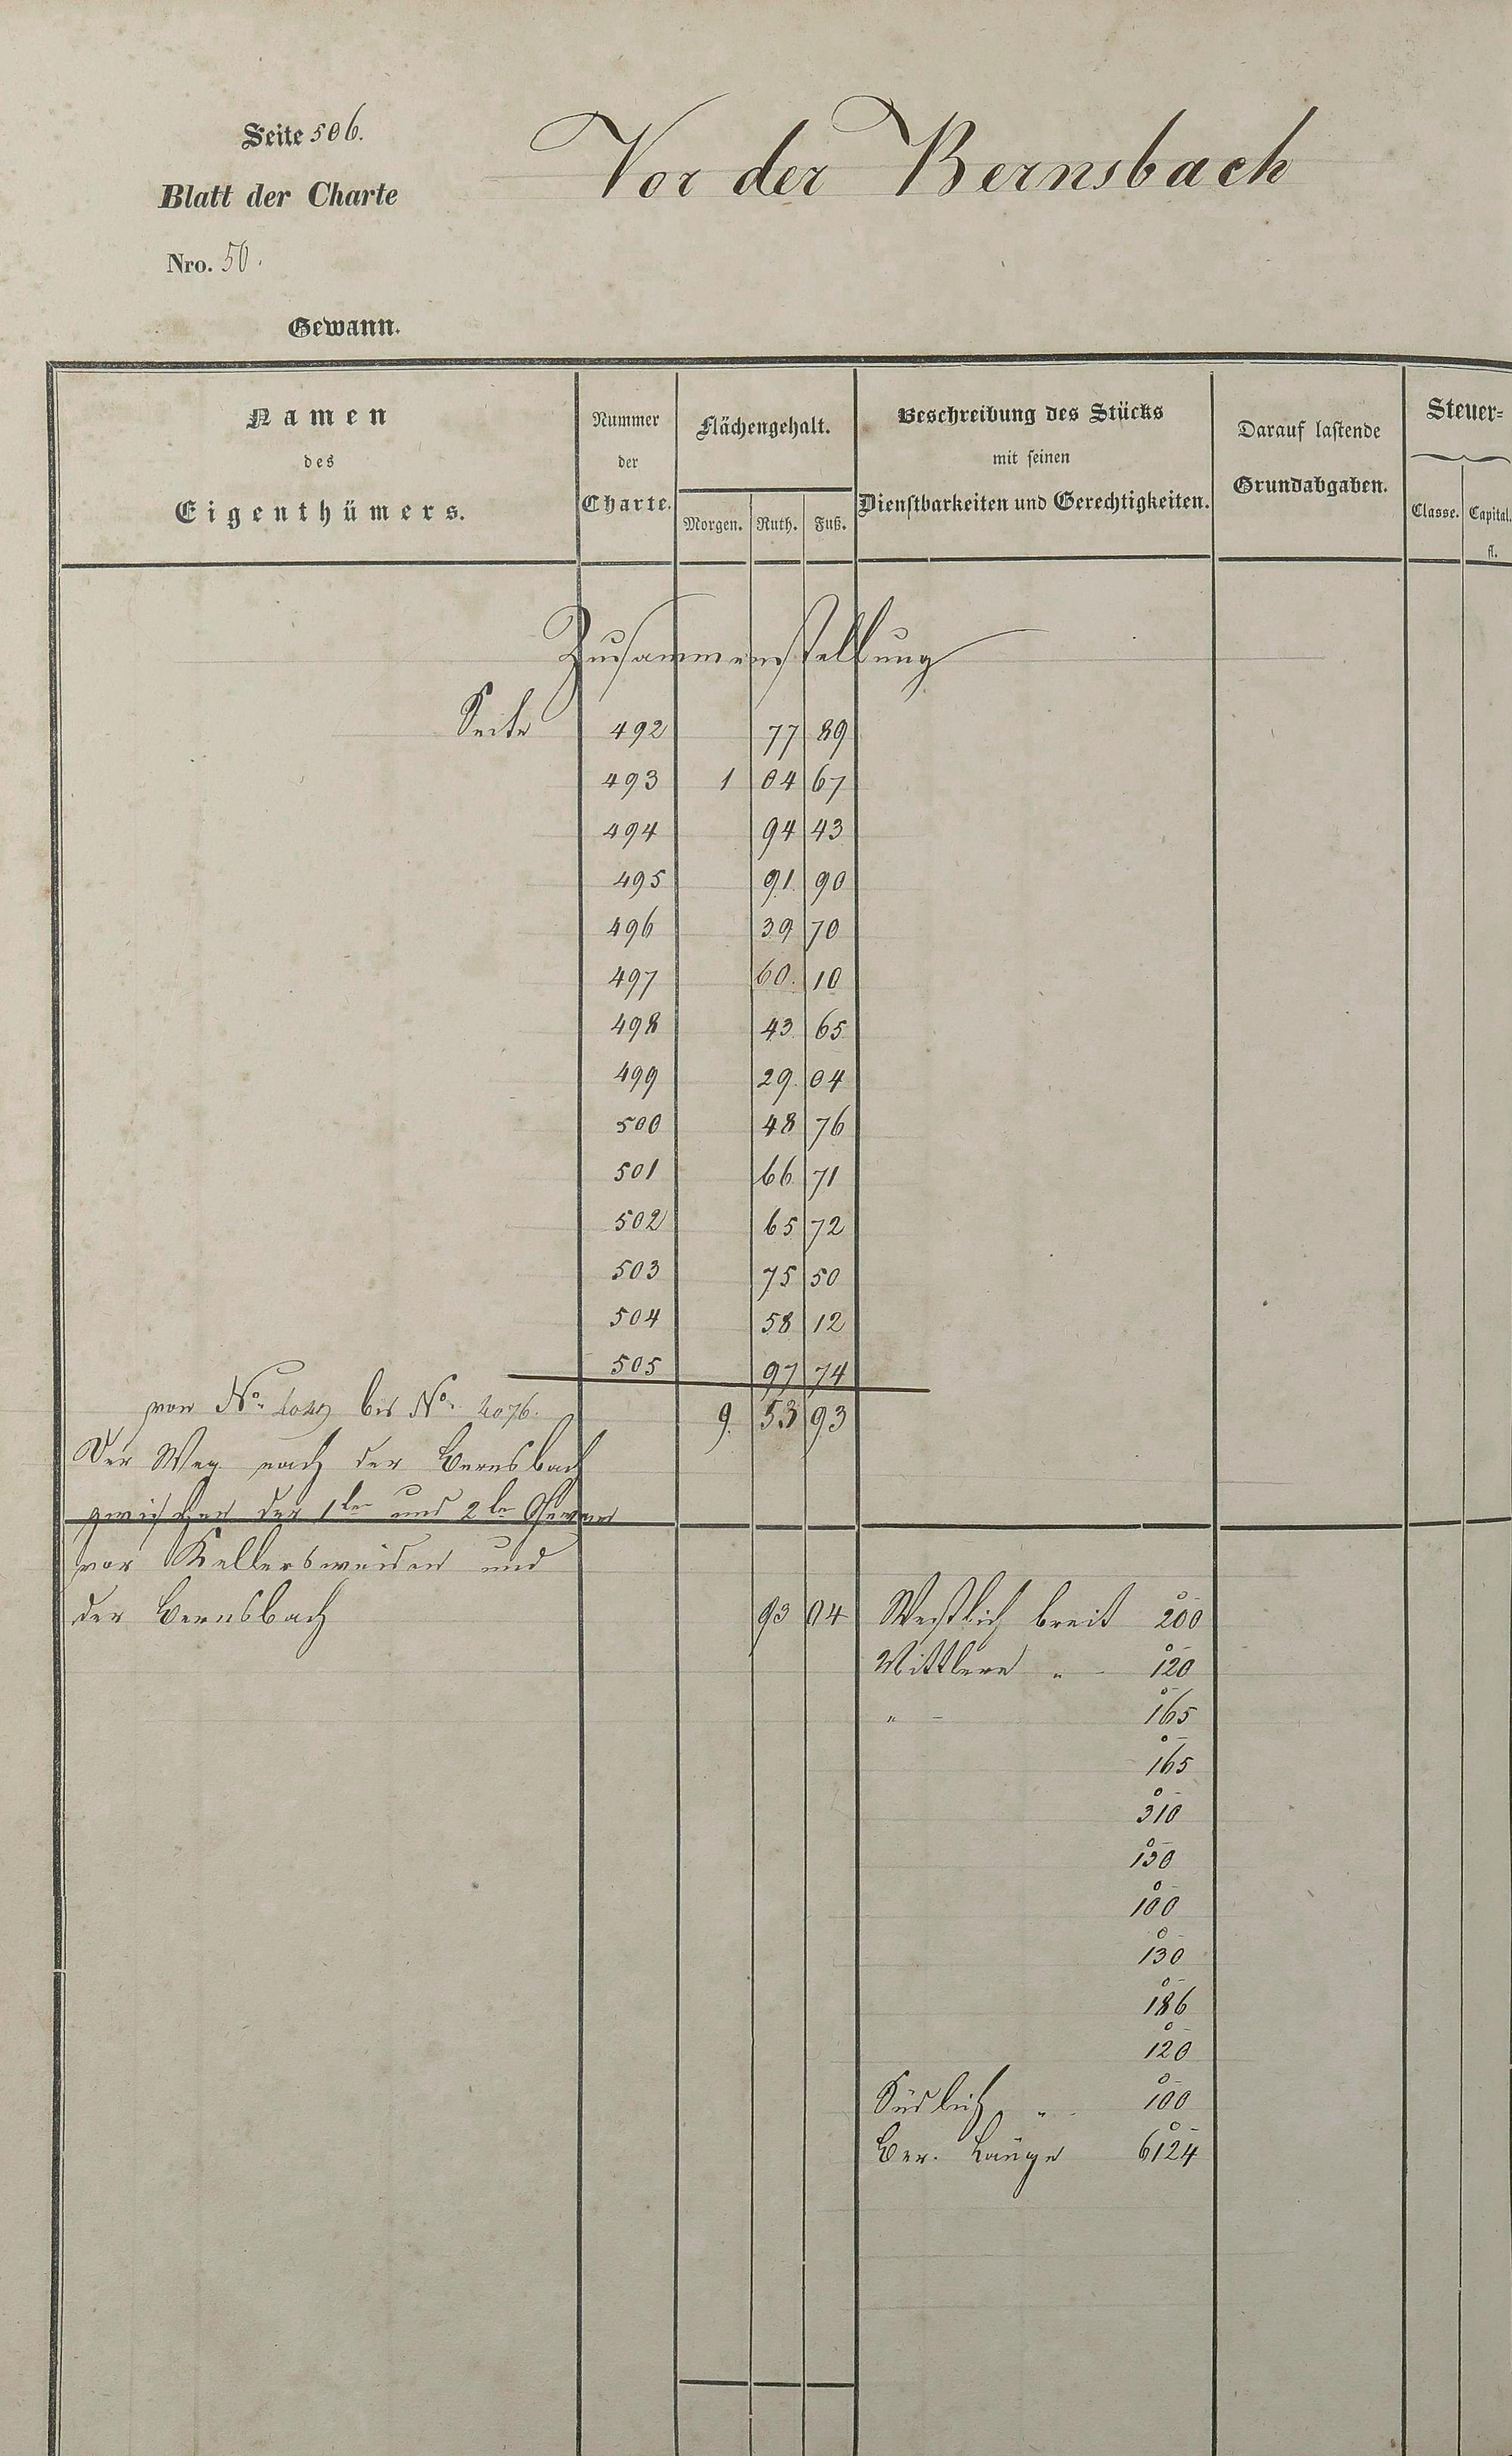 Seite 506.
Vor der Bernsbach
Blatt der Charte
Nro. 50.
Gewann.
Namen des Eigenthümers.
Nummer der Charte.
Flächengehalt.
Morgen. Ruth. Fuß.
Beschreibung des Stücks mit seinen Dienstbarkeiten und Gerechtigkeiten.
Darauf lastende Grundabgaben.
Steuer=
Classe. Capital.
fl.
Zusammenstellung
Seite 492 77 89
493 1 04 67
494 94 43
495 91 90
496 39 70
497 60. 10
498 43 65
499 29 04
500 48 76
501 66 71
502 65 72
503 75 50
504 58 12
505 97 74
von No. bis No. 4076. 9. 53 93
Der Weg nach der Bernsbach
zwischen der 1ten und 2ten Gewann
vor Kellersweiden und
der Bernsbach 93 04 Westlich breit 200
Mittlere " 120
" 165
165
310
130
100
130
186
120
Südlich " 100
Ber. Länge 6124